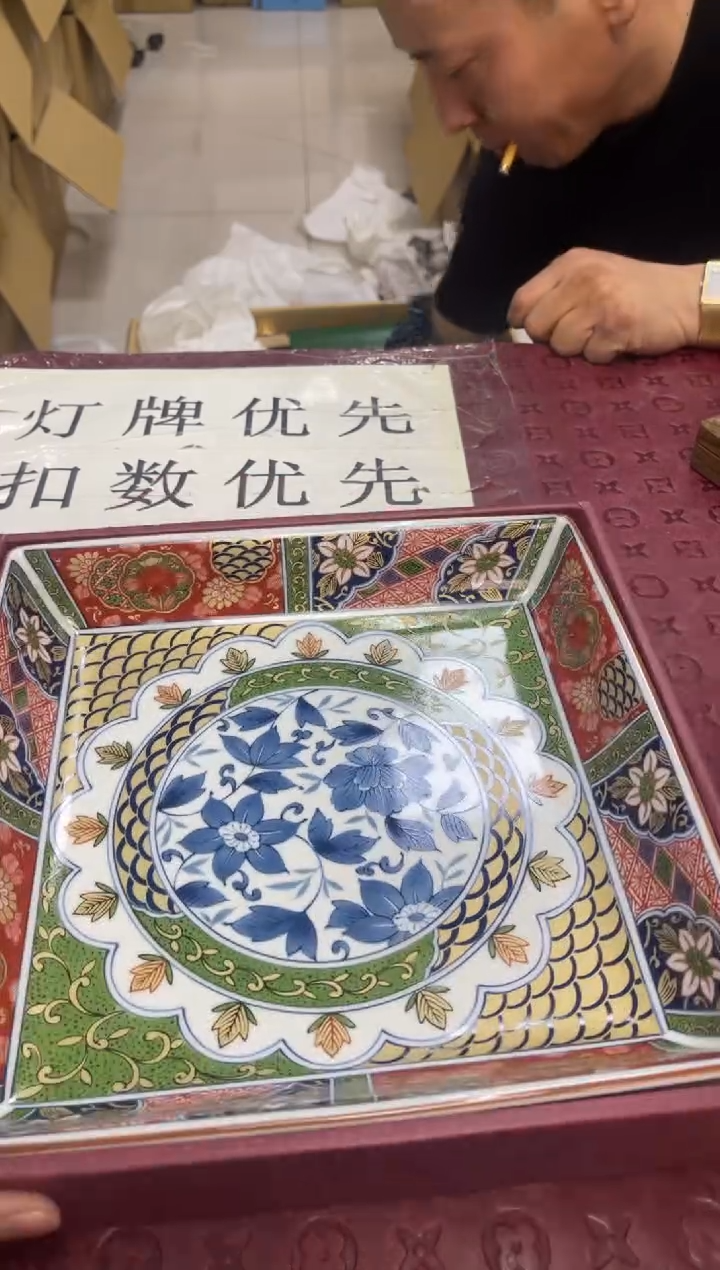 灯牌优先
扣数优先